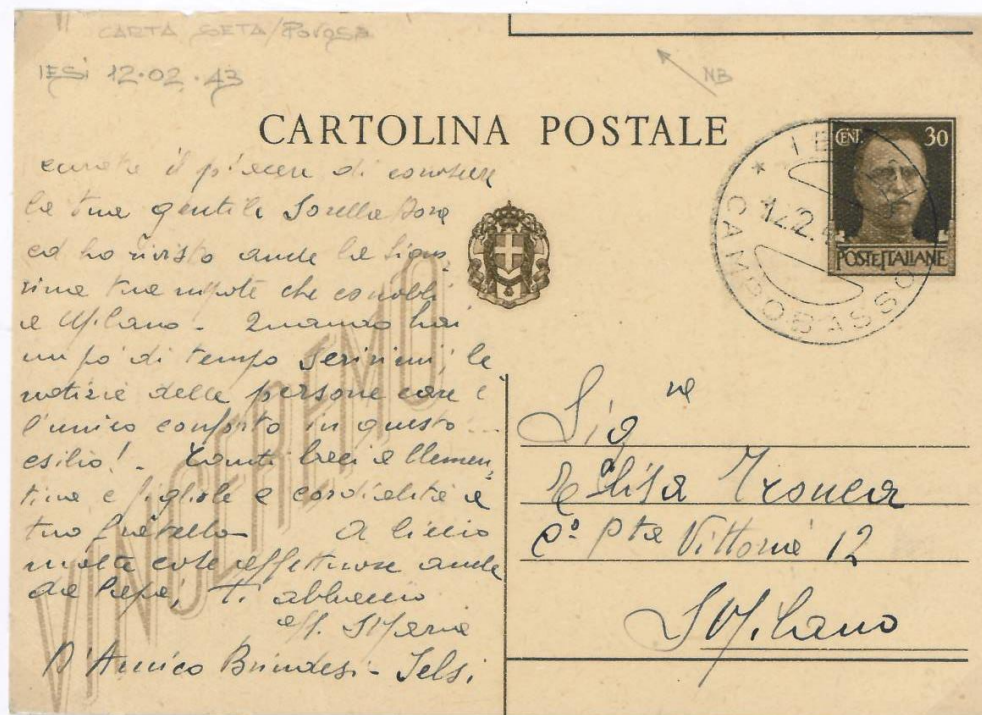 CARTA SETA/Porosa
IESI 12.02.43
NB
CARTOLINA POSTALE
CENT. 30
POSTE ITALIANE
CAMPOBASSO
12.2.4
VINCEREMO
il piacere di conoscere
la tua gentile Sorella Dora
ed ho rivisto anche la Signo-
rina tua nipote che conobbi
a Milano - Quando hai
un po' di tempo scrivimi; le
notizie delle persone care è
l'unico conforto in questo ...
esilio! - Tanti baci a Clemen-
tina e figliole e cordialità a
tuo fratello - A
molte cose affettuose anche
da Papà, ti abbraccio
aff. Maria
D'Amico Brindesi - Jelsi
Sig na
Elisa Tronca
Co Pta Vittoria 12
Milano